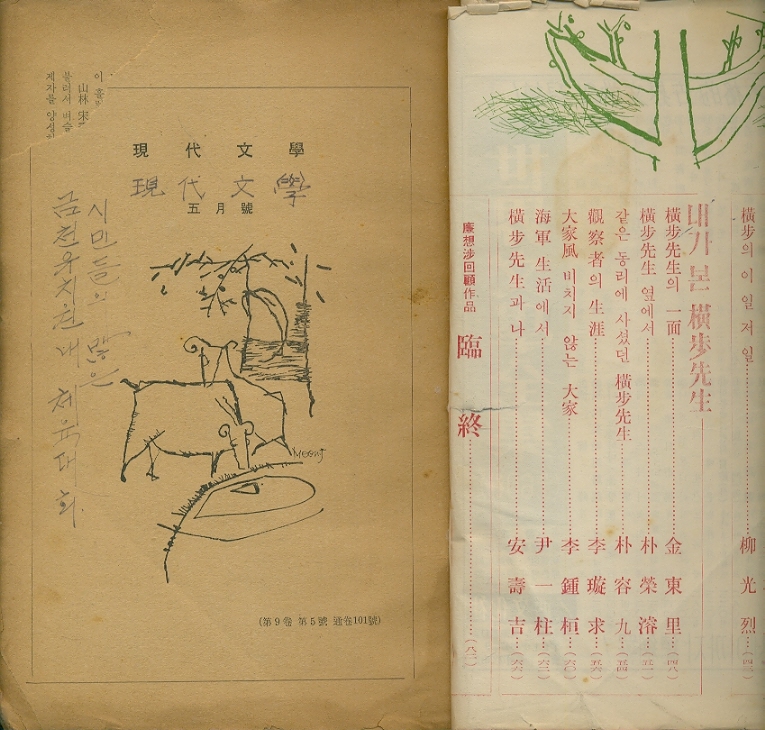 이 흘
山林 宋
물러서 벼슬
제자를 양성
現代文學
現代文學
五月號
시민들의 많은
금천우치천내 체육대회.
(第9卷 第5號 通卷101號)
橫步의 이 일 저 일 柳光烈 (四三)
내가 본 橫步先生
橫步先生의 一面 金東里 (四八)
橫步先生 옆에서 朴榮濬 (五一)
같은 동리에 사셨던 橫步先生 朴容九 (五四)
觀察者의 生涯 李璇求 (五六)
大家風 비치지 않는 大家 李鍾桓 (六〇)
海軍 生活에서 尹一柱 (六二)
橫步先生과 나 安壽吉 (六六)
廉想涉回顧作品 臨終 (八一)